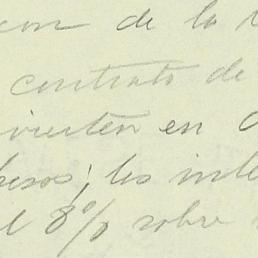 con de la
contrato de
vierten en
pesos; los inte
el 8% sobre